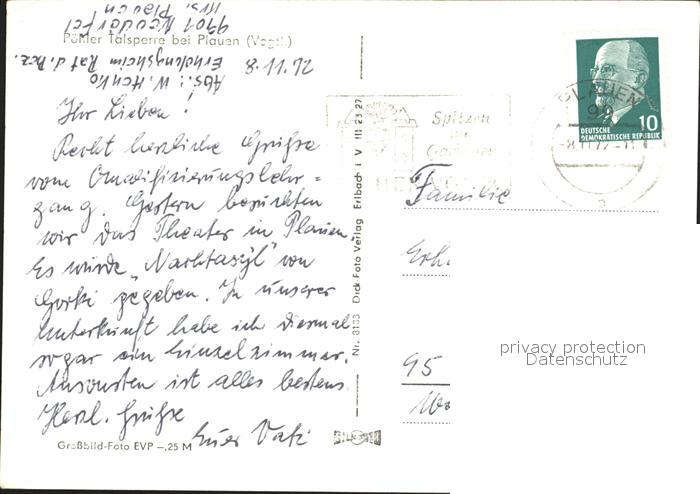 Pöhler Talsperre bei Plauen (Vogtl.)
Abs.: W. Henko
Erholungsheim Rat d. Bez.
9701 Neudorf
Krs. Plauen
8.11.72
Ihr Lieben!
Recht herzliche Grüße
vom Qualifizierungslehr=
gang. Gestern besuchten
wir das Theater in Plauen.
Es wurde „Nachtasyl" von
Gorki gegeben. In unserer
Unterkunft habe ich diesmal
sogar ein Einzelzimmer.
Ansonsten ist alles bestens.
Herzl. Grüße
Euer Vati
Großbild-Foto EVP –,25 M
Nr. 8133 Dick Foto Verlag Erlbach i V III 23 27
Spitzen
PLAUEN
DEUTSCHE
DEMOKRATISCHE REPUBLIK
10
Familie
95
privacy protection
Datenschutz